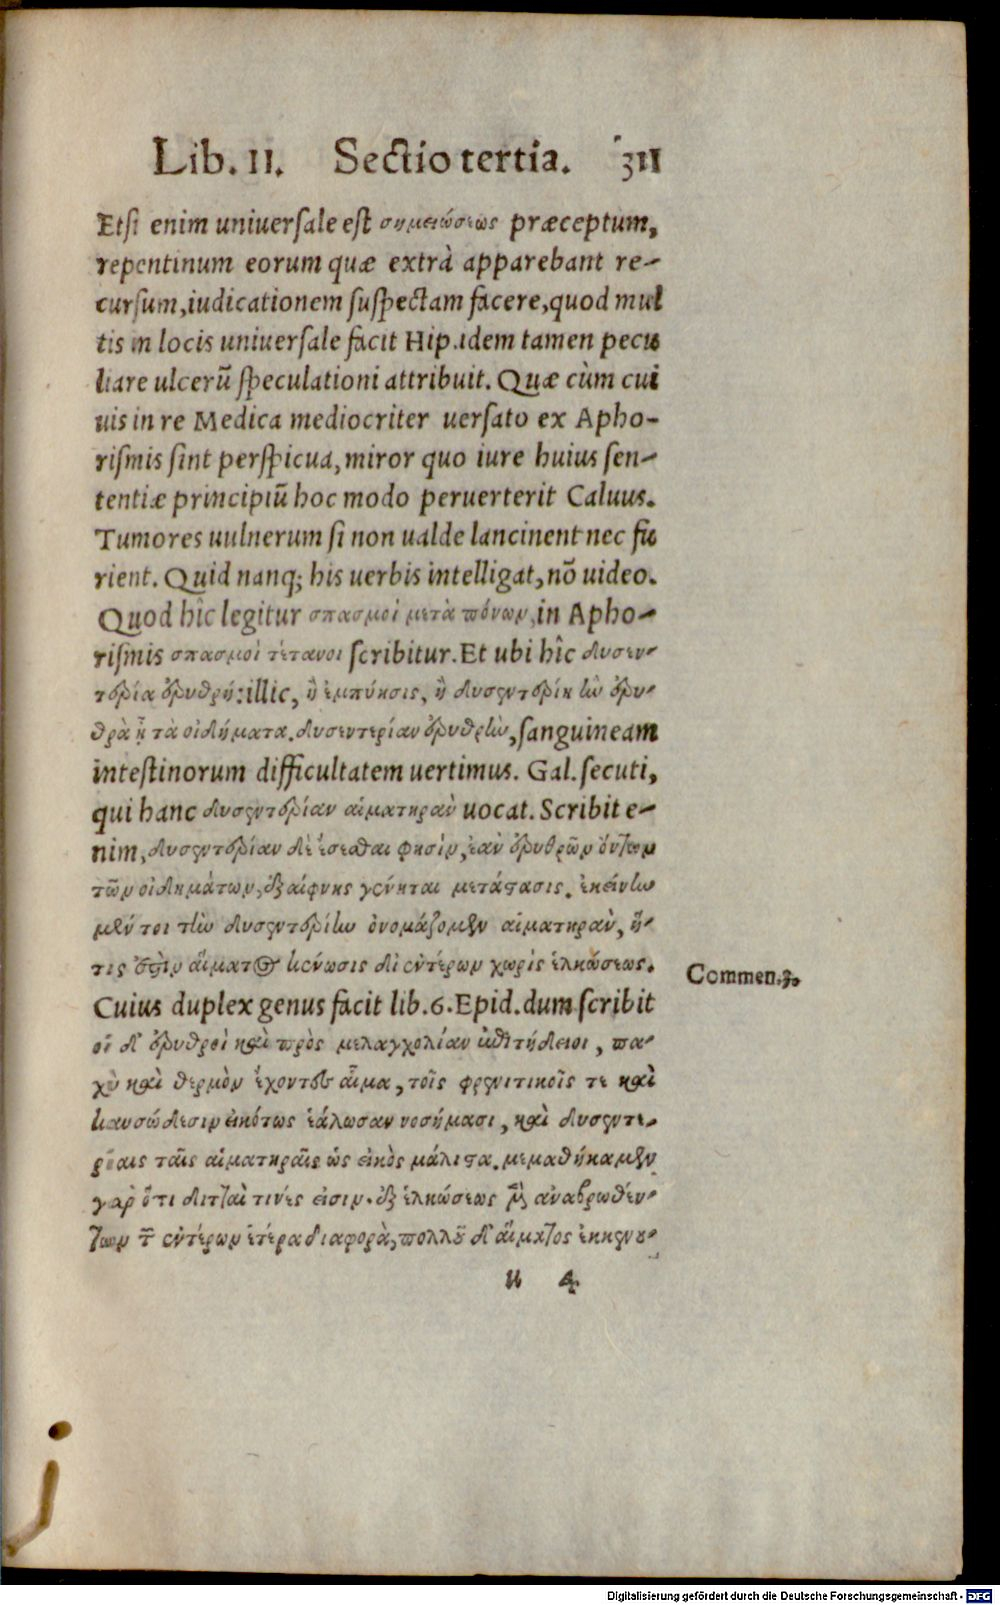 Lib. II. Sectio tertia. 311
Etsi enim uniuersale est σημειώσεως præceptum,
repentinum eorum quæ extrà apparebant re-
cursum, iudicationem suspectam facere, quod mul
tis in locis uniuersale facit Hip. idem tamen pecu
liare ulcerũ speculationi attribuit. Quæ cùm cui
uis in re Medica mediocriter uersato ex Apho-
rismis sint perspicua, miror quo iure huius sen-
tentiæ principiũ hoc modo peruerterit Caluus.
Tumores uulnerum si non ualde lancinent nec fu
rient. Quid nanq; his uerbis intelligat, nõ uideo.
Quod hîc legitur σπασμοὶ μετὰ πόνων, in Apho-
rismis σπασμοὶ τέτανοι scribitur. Et ubi hîc δυσεν-
τερία ἐρυθρή: illic, ἢ ἐμπύησις, ἢ δυσεντερίη ἐὼ ἐρυ-
θρὰ ᾖ τὰ οἰδήματα. δυσεντερίαν ἐρυθρὼ, sanguineam
intestinorum difficultatem uertimus. Gal. secuti,
qui hanc δυσεντερίαν αἱματηρὰν uocat. Scribit e-
nim, δυσεντερίαν δὲ ἔσεσθαι φησὶν, ἐὰν ἐρυθρῶν ὄντων
τῶν οἰδημάτων, ἐξαίφνης γένηται μετάστασις. ἐκείνην
μέν τοι τὴν δυσεντερίην ὀνομάζομεν αἱματηρὰν, ἥ-
τις ἐστὶν αἵματος κένωσις δι ἐντέρων χωρὶς ἑλκώσεως.
Commen. 3.
Cuius duplex genus facit lib. 6. Epid. dum scribit
οἱ δ' ἐρυθροὶ καὶ πρὸς μελαγχολίαν ἐπιτήδειοι, πα-
χὺ καὶ θερμὸν ἔχοντες αἷμα, τοῖς φρενιτικοῖς τε καὶ
καυσώδεσιν εἰκότως ἑάλωσαν νοσήμασι, καὶ δυσεντε-
ρίαις ταῖς αἱματηραῖς ὡς εἰκὸς μάλιστα. μεμαθήκαμεν
γὰρ ὅτι διτταὶ τινές εἰσιν. ἐξ ἑλκώσεως μὲν ἀναβρωθέν-
των τῶν ἐντέρων ἑτέρα διαφορὰ, πολλοῦ δ' αἵματος ἐκκενου-
u 4
Digitalisierung gefördert durch die Deutsche Forschungsgemeinschaft · DFG